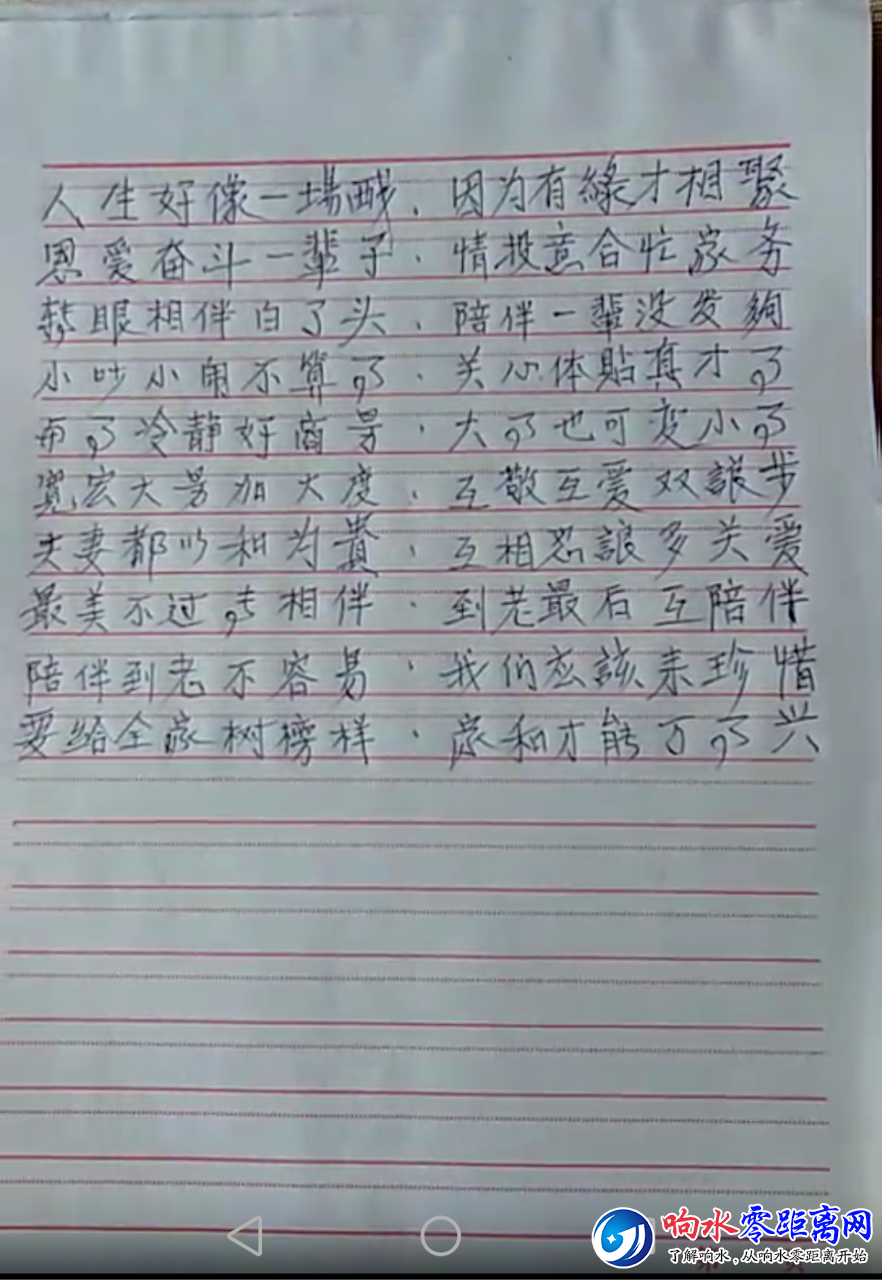 人生好像一場戲，因为有緣才相聚
恩爱奋斗一辈子，情投意合忙家务
轉眼相伴白了头，陪伴一辈没发夠
小吵小闹不算事，关心体貼真才事
有事冷静好商量，大事也可变小事
寬宏大量加大度，互敬互爱双讓步
夫妻都以和为貴，互相忍讓多关爱
最美不过情相伴，到老最后互陪伴
陪伴到老不容易，我们应該来珍惜
要给全家树榜样，家和才能万事兴
响水零距离网
了解响水，从响水零距离开始